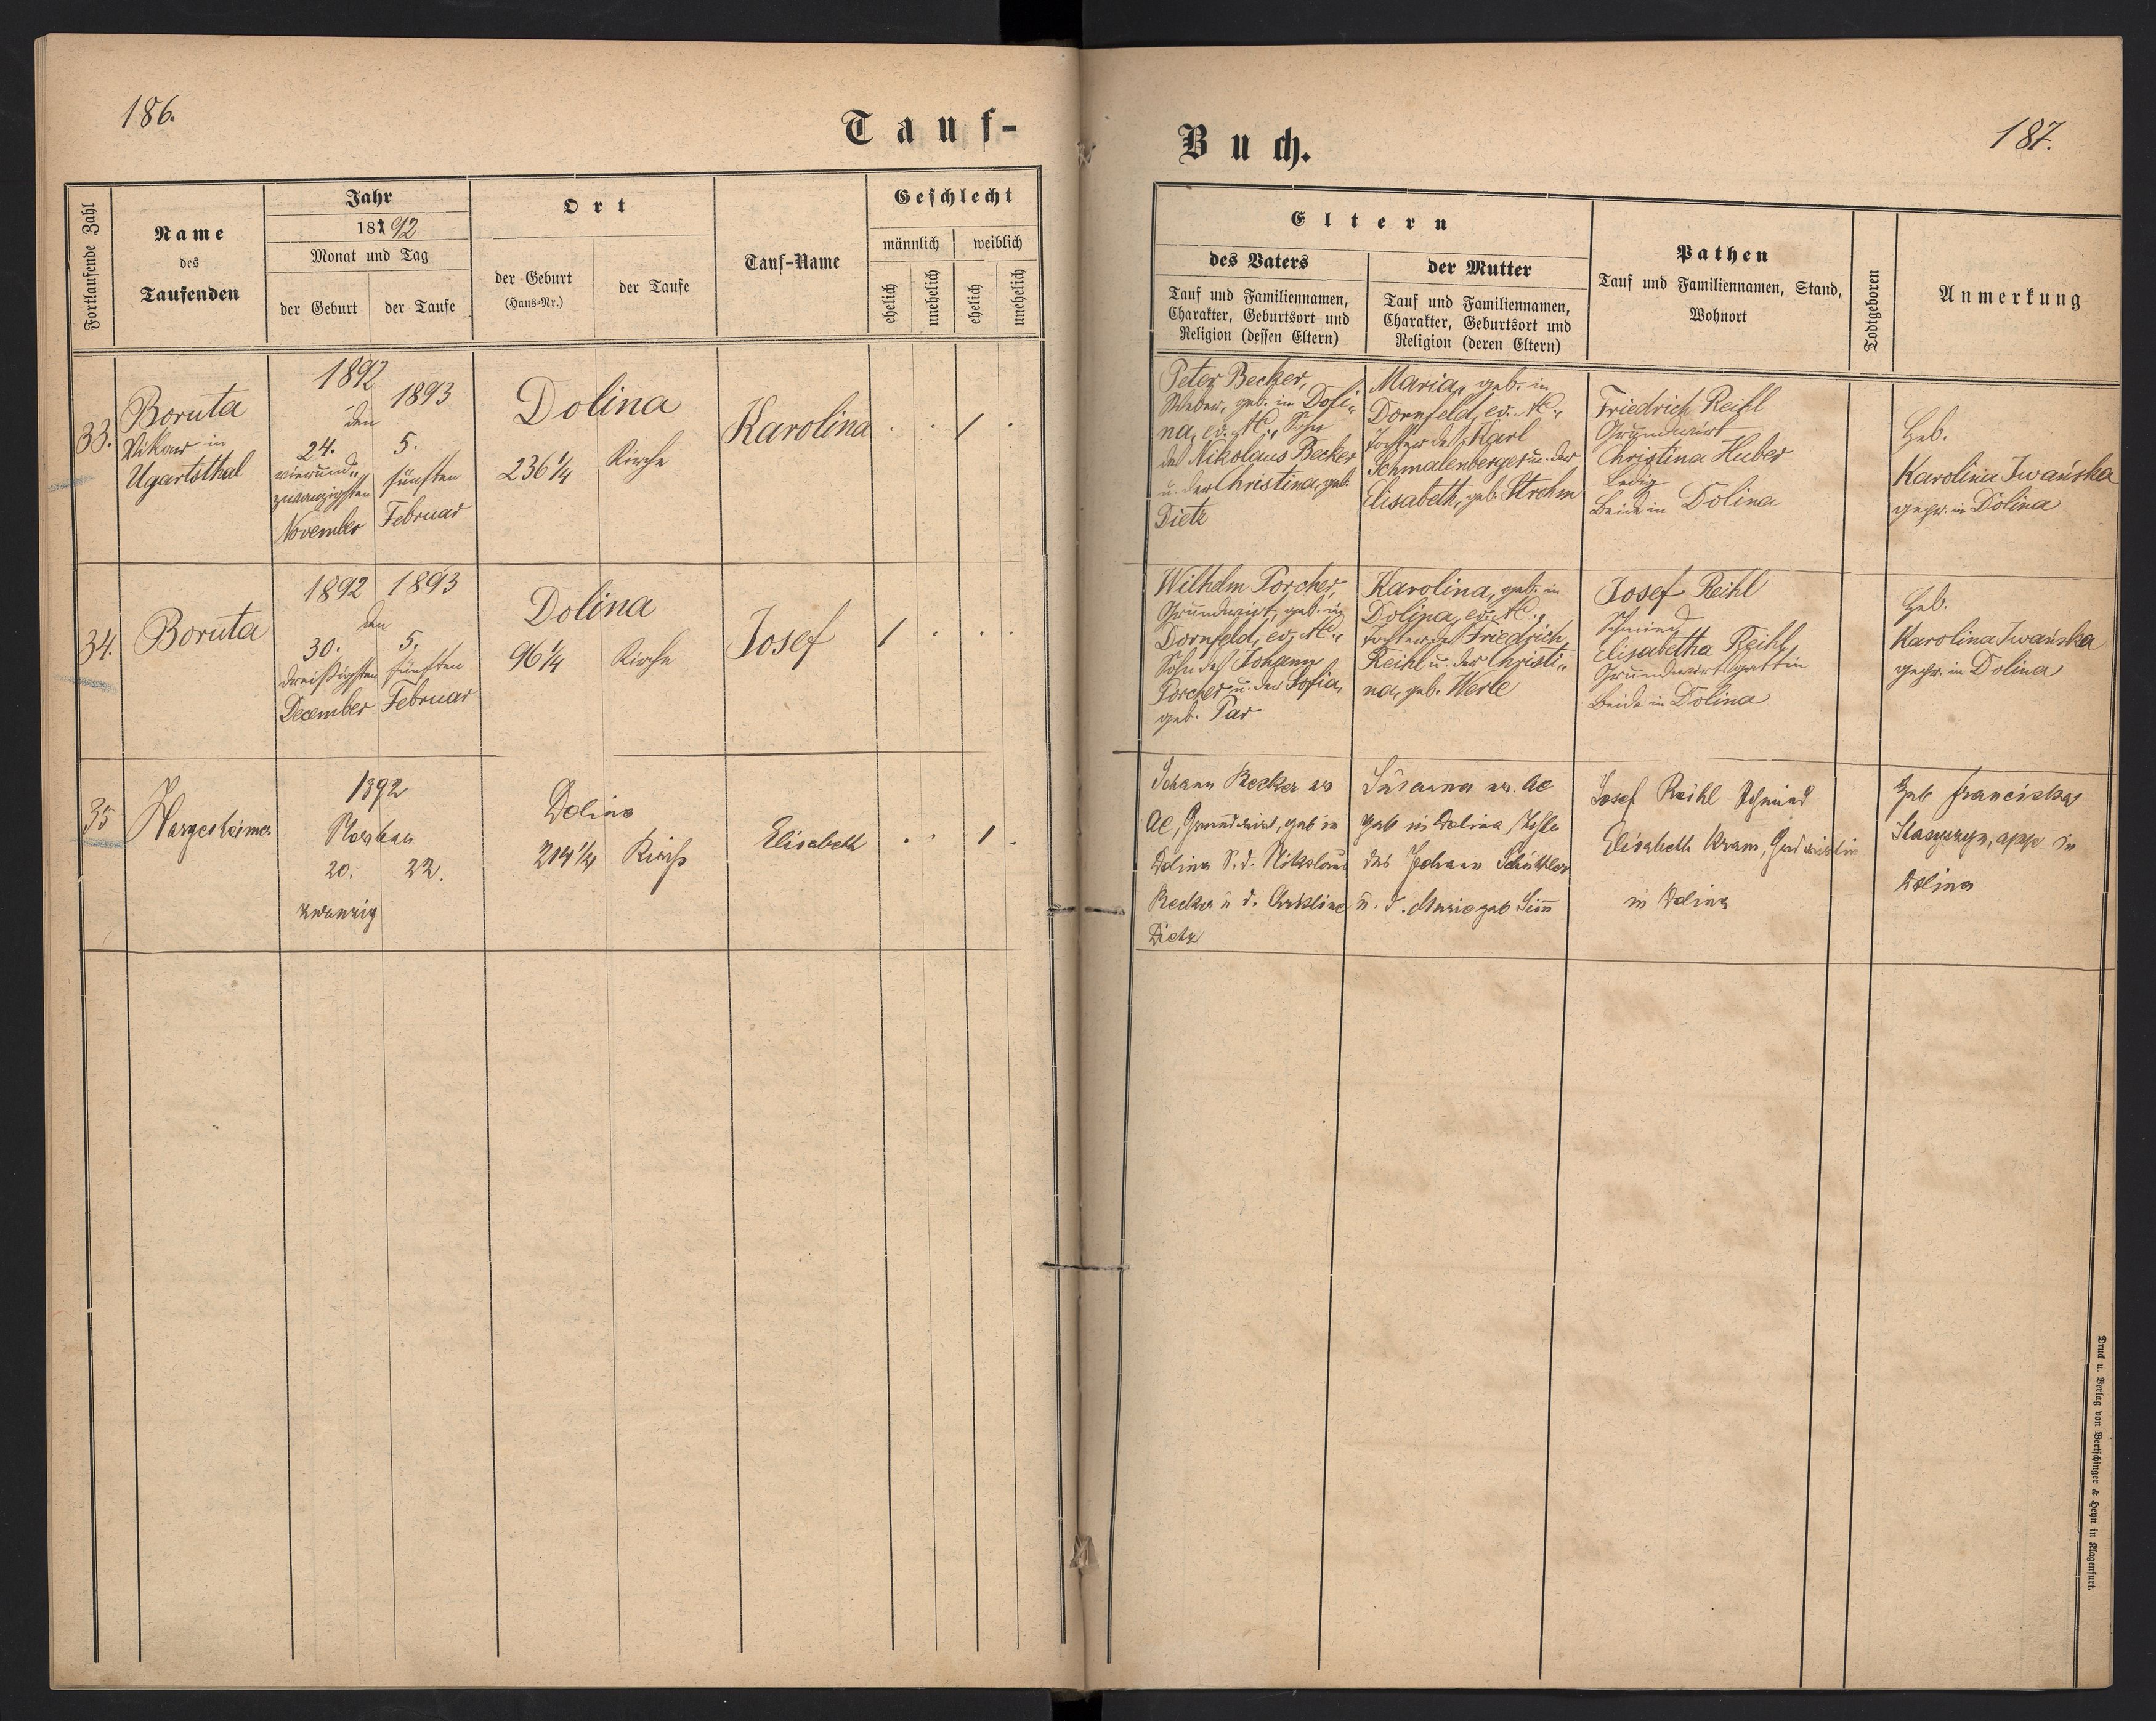 186.
Tauf-
Fortlaufende Zahl
Name
des
Taufenden
Jahr
187 92
Monat und Tag
der Geburt
der Taufe
Ort
der Geburt
(Haus-Nr.)
der Taufe
Tauf-Name
Geschlecht
männlich
weiblich
ehelich
unehelich
ehelich
unehelich
33.
Boruta
Vikar in
Ugartsthal
1892
den
24.
vierund„
zwanzigsten
November
1893
5.
fünften
Februar
Dolina
236 1/4
Kirche
Karolina
/
34.
Boruta
1892
1893
den
30.
5.
dreißigsten
fünften
December
Februar
Dolina
96 1/4
Kirche
Josef
/
35
Hargesheimer
1892
20.
22.
zwanzig
Dolina
214 1/4
Kirche
Elisabeth
/
Buch.
187.
Eltern
des Vaters
Tauf und Familiennamen,
Charakter, Geburtsort und
Religion (dessen Eltern)
der Mutter
Tauf und Familiennamen,
Charakter, Geburtsort und
Religion (deren Eltern)
Pathen
Tauf und Familiennamen, Stand,
Wohnort
Todtgeboren
Anmerkung
Peter Becker,
Weber, geb. in Doli„
na, ev. A.C., Sohn
des Nikolaus Becker
u. der Christina, geb.
Dietz
Maria, geb. in
Dornfeld, ev. A.C.,
Tochter des Karl
Schmalenberger u. der
Elisabeth, geb.
Friedrich Reihl
Grundwirt
Christina Huber
ledig
Beide in Dolina
Heb.
Karolina Iwańska
gepr. in Dolina
Wilhelm Porcher,
Grundwirt, geb. in
Dornfeld, ev. A.C.,
Sohn des Johann
Porcher u. der Sofia,
geb. Par
Karolina, geb. in
Dolina, ev. A.C.,
Tochter des Friedrich
Reihl u. der Christi„
na, geb. Werle
Josef Reihl
Schmied
Elisabetha Reihl,
Grundwirtsgattin
Beide in Dolina
Heb.
Karolina Iwańska
gepr. in Dolina
Johann Becker ev
AC, Grundwirt, geb in
Dolina S. d. Nikolaus
Becker u d. Christine
Dietz
Susanna ev. AC
geb in Dolina, Tochter
des Johann Schüttler
u. d. Marie geb
Josef Reihl Schmied
Elisabeth Kram,
in Dolina
Heb Franciska
in
Dolina
Druck u. Verlag von Bertschinger & Heyn in Klagenfurt.